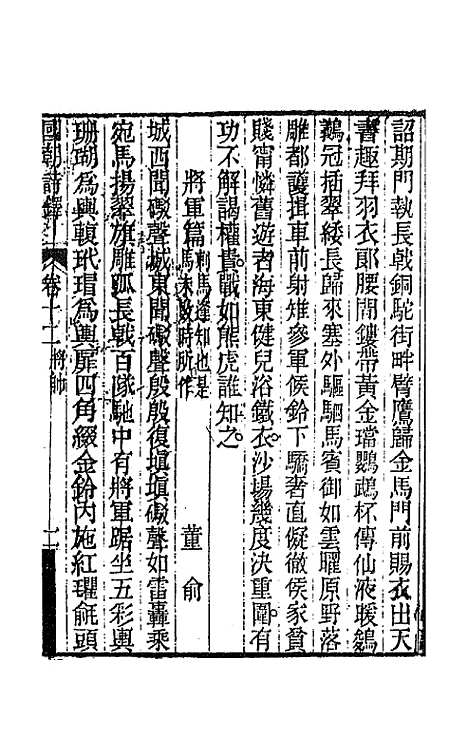 詔期門執長戟銅駝街畔臂鷹歸金馬門前賜衣出天
書趣拜羽衣郎腰間鏤帶黃金璫鸚鵡杯傳仙液暖鷫
鸘冠插翠緌長歸來塞外驅駟馬賓御如雲曜原野落
雕都護揖車前射雉參軍候鈴下驕奢直儗徹侯家貧
賤甯憐舊遊者海東健兒浴鐵衣沙場幾度決重圍有
功不解謁權貴戰如熊虎誰知之
將軍篇刺馬逢知也是馬未敗時所作
董俞
城西聞礮聲城東聞礮聲殷殷復塡塡礮聲如雷轟乘
宛馬揚翠旗雕弧長戟百隊馳中有將軍踞坐五彩輿
珊瑚爲輿轅玳瑁爲輿扉四角綴金鈴內施紅㲲毹頭
國朝詩鐸 卷十二 將帥 二